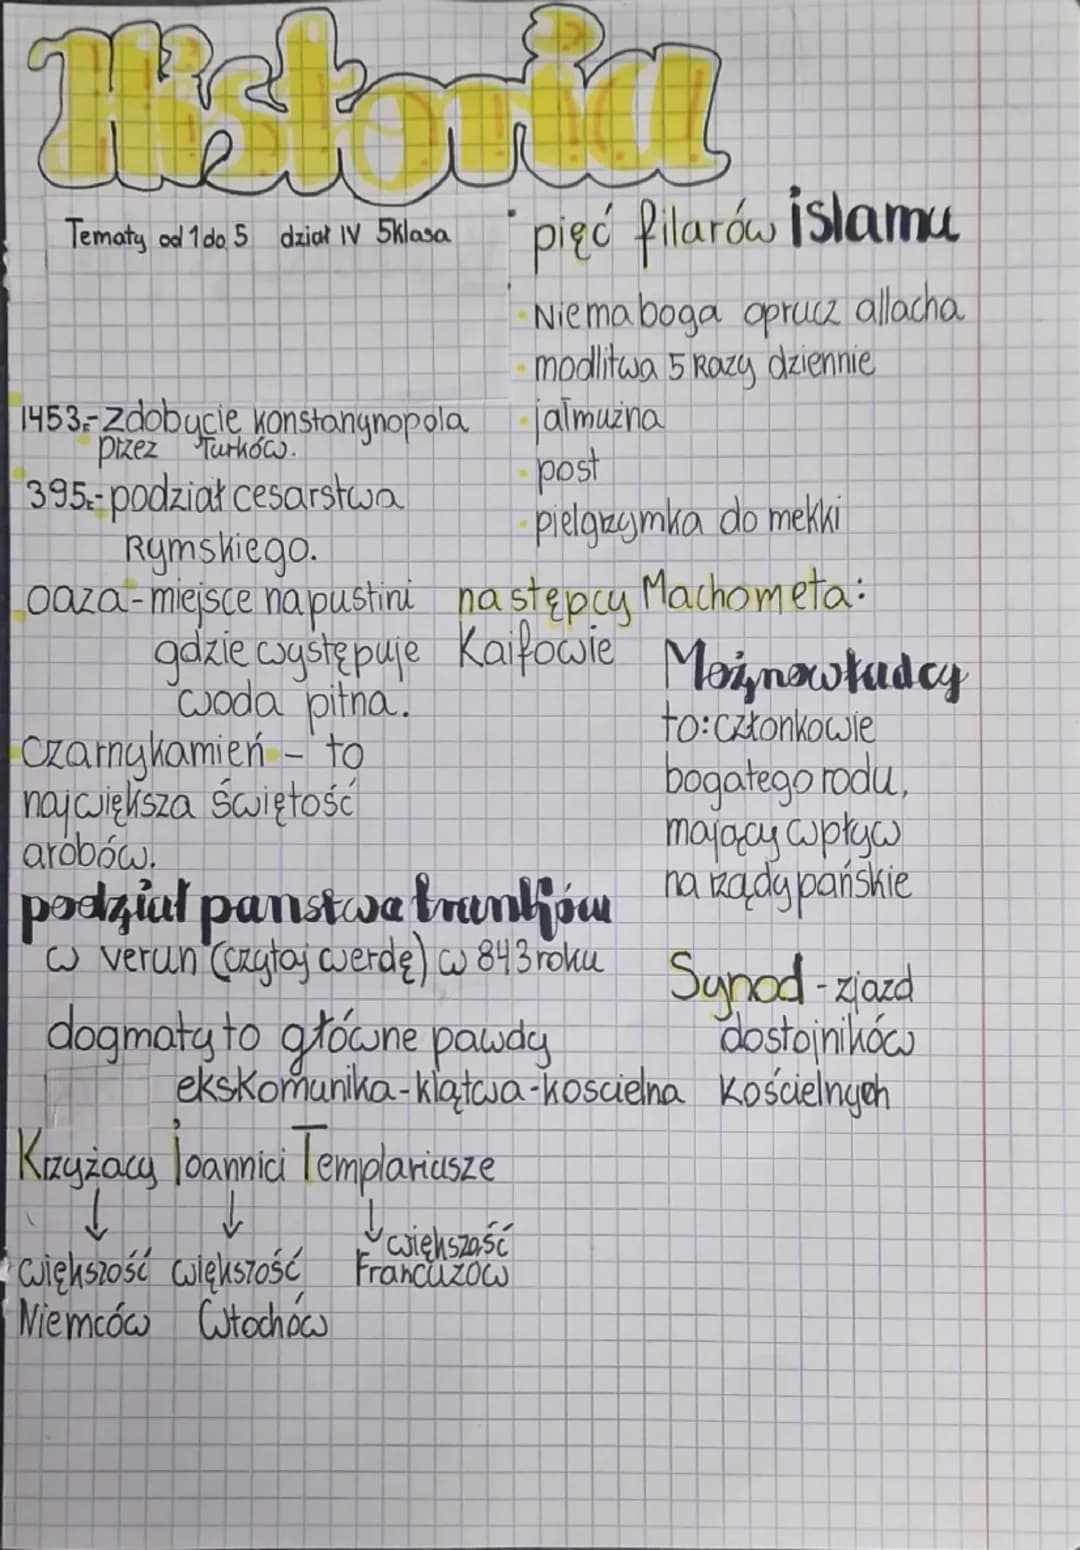 Historia
Tematy od 1 do 5 dział IV 5klasa
pięć filarów islamu
Niema boga oprucz allacha
modlitwa 5 Razy dziennie
jałmużna
post
pielgrzymka do mekki
1453r-zdobycie konstanynopola
przez Turków.
395r-podział cesarstwa
Rymskiego.
oaza-miejsce na pustini
gdzie występuje
woda pitna.
czarny kamień - to
największa świętość
arabów.
następcy Machometa:
Kaifowie
Możnowładcy
to: członkowie
bogatego rodu,
mający wpływ
na rządy pańskie
podział panstwa franków
w verun (czytaj werdę) w 843 roku
Synod - zjazd
dostojników
Kościelnych
dogmaty to główne pawdy
ekskomunika-klątwa-koscielna
Krzyżacy Joannici Templariusze
większość większość większość
Niemców Włochów Francuzów